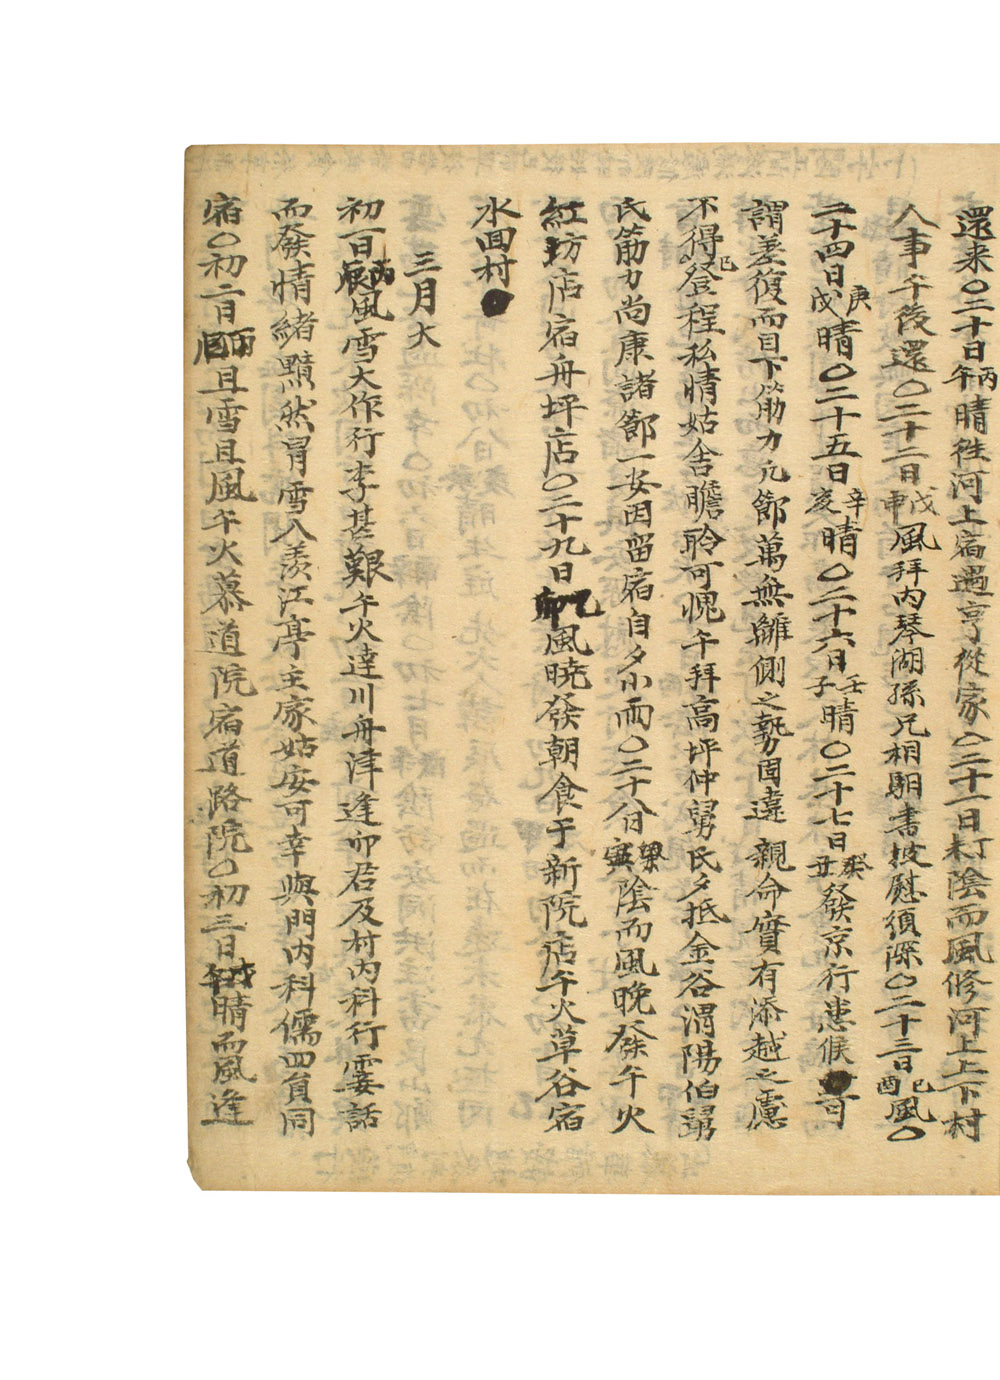 還来○二十日丙午晴徃河上宿遇亨從家○二十一日丁未陰而風修河上上下村
人事午後還○二十二日戊申風拜內琴湖孫兄相駉書披慰須深○二十三日己酉風○
二十四日庚戌晴○二十五日辛亥晴○二十六日壬子晴○二十七日癸丑發京行患候可
謂差復而目下筋力凡節萬無離側之勢固違親命實有添越之慮
不得已登程私情姑舍瞻聆可愧午拜高坪仲舅氏夕抵金谷渭陽伯舅
氏筋力尚康諸節一安因留宿自夕小雨○二十八日甲寅陰而風晚發午火
紅坊店宿舟坪店○二十九日乙卯風曉發朝食于新院店午火草谷宿
水回村
三月大
初一日丙辰風雪大作行李甚艱午火達川舟津逢卯君及村內科行霎話
而發情緖黯然冒雪入羡江亭主家姑安可幸與門內科儒四員同
宿○初二日且雪且風午火慕道院宿道路院○初三日戊午晴而風逢